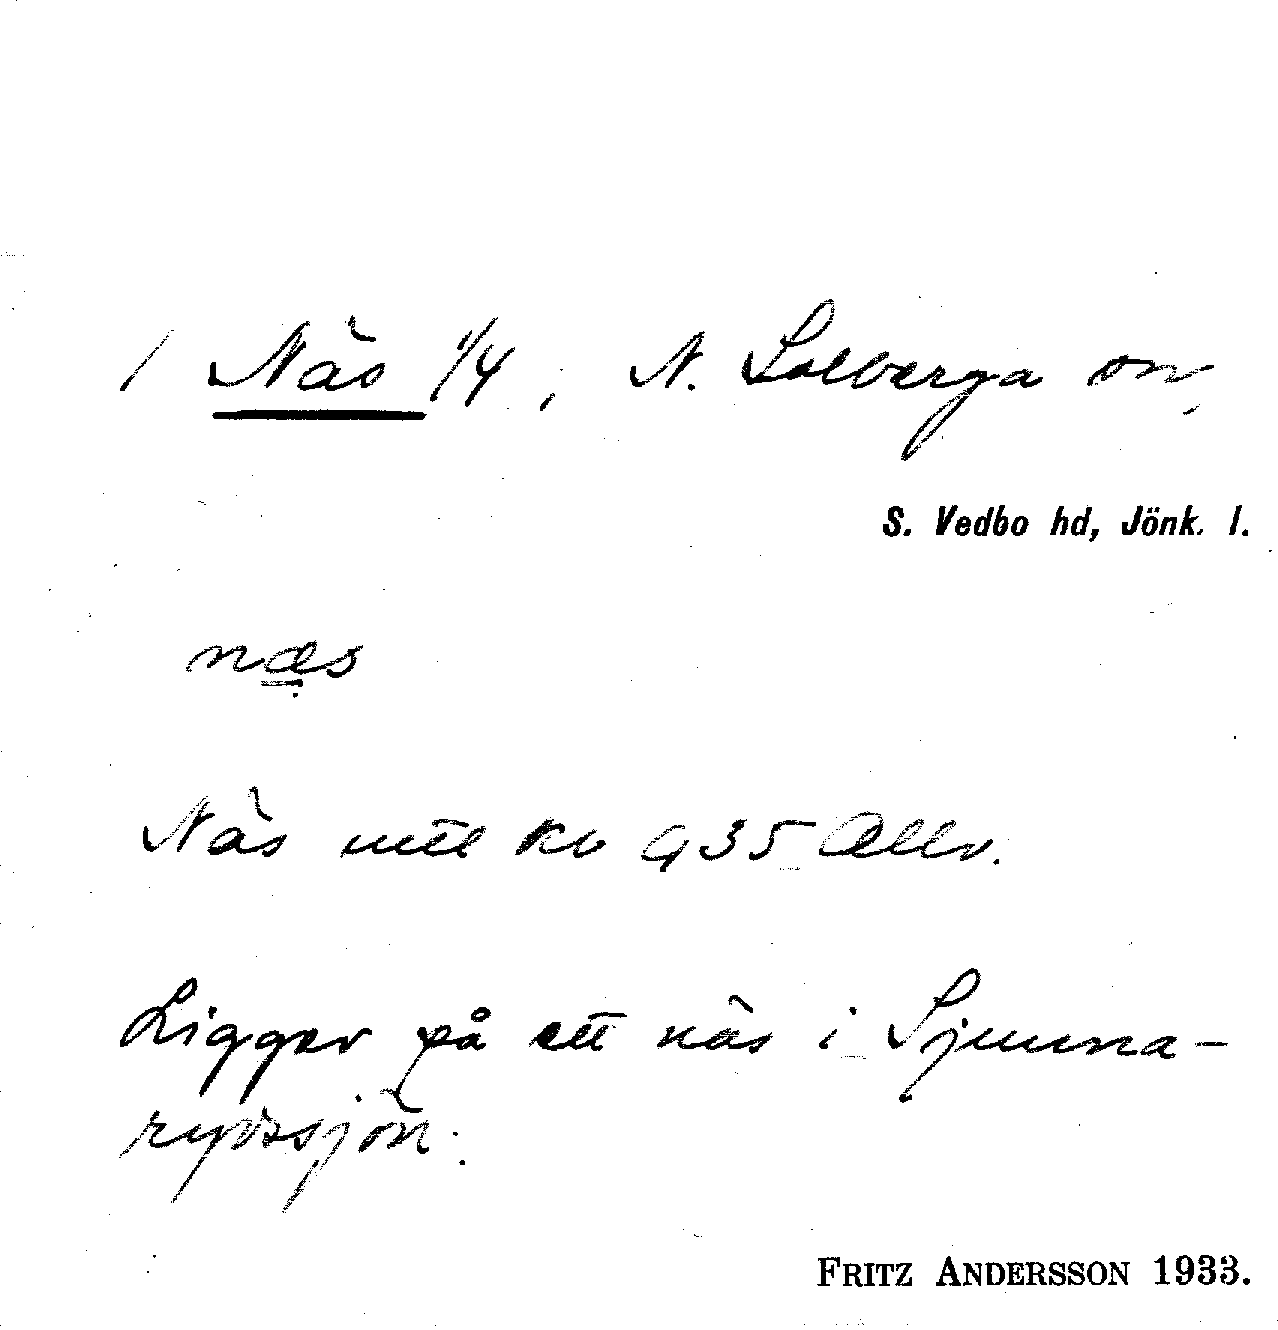 / Näs 1/4, N. Solberga sn,
S. Vedbo hd, Jönk. l.
næs
Näs mtl Kb 935 Allv.
Ligger på ett näs i Sjunna-
rydssjön.
FRITZ ANDERSSON 1933.